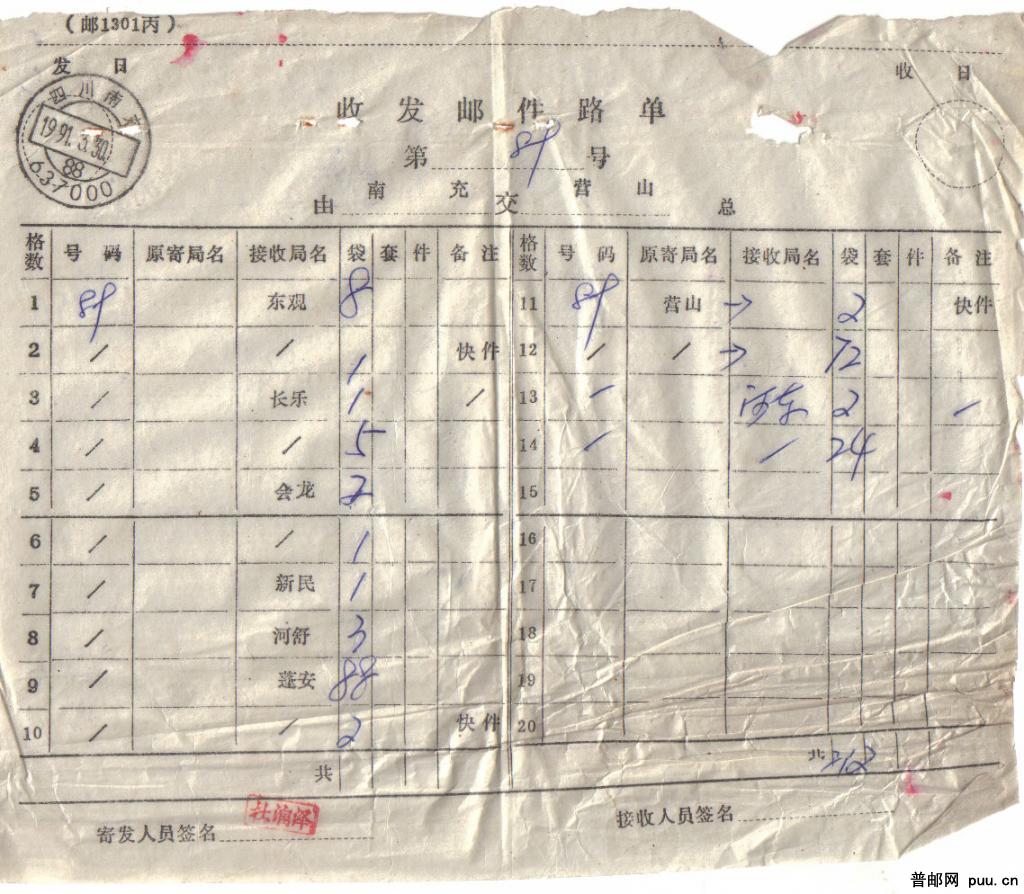 （邮1301丙）
发 日
收 日
四川南充
1991.3.30.
88
637000
收 发 邮 件 路 单
第 89 号
由 南 充 交 营 山 总
格数 号 码 原寄局名 接收局名 袋 套 件 备 注 格数 号 码 原寄局名 接收局名 袋 套 件 备 注
1 89 东观 8 11 89 营山 → 2 快件
2 / / 1 快件 12 / / → 72
3 / 长乐 1 / 13 / 河东 2 /
4 / / 5 14 / / 24
5 / 会龙 2 15
6 / / 1 16
7 / 新民 1 17
8 / 河舒 3 18
9 / 蓬安 88 19
10 / / 2 快件 20
共 共
寄发人员签名 接收人员签名
普邮网 puu.cn